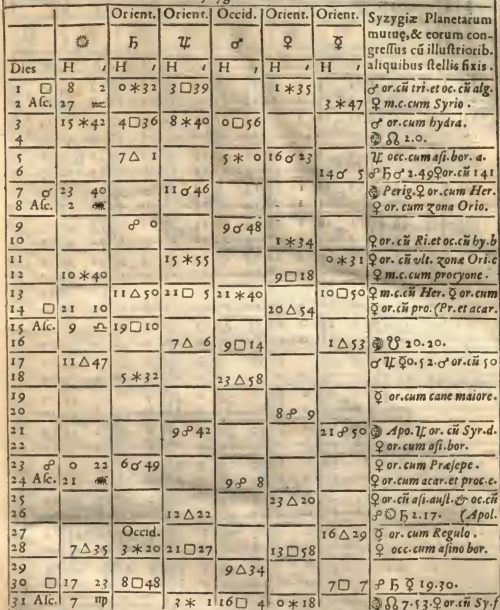 Orient. Orient. Occid. Orient. Orient. Syzygiæ Planetarum
mutuę, & eorum con-
☼ ♄ ♃ ♂ ♀ ☿ gressus cũ illustriorib.
Dies H ′ H ′ H ′ H ′ H ′ H ′ aliquibus stellis fixis.
1 □ 8 2 0 ⚹ 32 3 □ 39 1 ⚹ 35 ♂ or. cũ tri. et oc. cũ alg.
2 Asc. 27 3 ⚹ 47 ♀ m.c. cum Syrio.
3 15 ⚹ 42 4 □ 36 8 ⚹ 40 0 □ 56 ♂ or. cum hydra.
4 ☊ 2.0.
5 7 △ 1 5 ⚹ 0 16 ☌ 23 ♃ occ. cum asi. bor. a.
6 14 ☌ 5 ☍ ♄ ♂ 2.49 ♀ or. cũ 141
7 ☌ 23 40 11 ☌ 46 Perig. ♀ or. cum Her.
8 Asc. 2 ♀ or. cum zona Orio.
9 ☍ 0 9 ☌ 48
10 1 ⚹ 34 ♀ or. cũ Ri. et oc. cũ hy. b
11 15 ⚹ 55 0 ⚹ 31 ♀ or. cũ vlt. zonæ Ori. c
12 10 ⚹ 40 9 □ 18 ♀ m.c. cum procyone.
13 11 △ 50 21 □ 5 21 ⚹ 40 10 □ 50 ♀ m.c. cũ Her. ♀ or. cum
14 □ 21 10 20 △ 54 ♀ or. cũ pro. (Pr. et acar.
15 Asc. 9 ♎ 19 □ 10
16 7 △ 6 9 □ 14 1 △ 53 ☋ 20.20.
17 11 △ 47 ☌ ♃ ☿ 0.52. ♂ or. cũ 50
18 5 ⚹ 32 23 △ 58
19 ☿ or. cum cane maiore.
20 8 ☍ 9
21 9 ☍ 42 21 ☍ 50 Apo. ♃ or. cũ Syr. d.
22 ♀ or. cum asi. bor.
23 ☍ 0 22 6 ☌ 49 ♀ or. cum Præsepe.
24 Asc. 21 9 ☍ 8 ♀ or. cum acar. et proc. e.
25 23 △ 20 ♀ or. cũ asi. aust. & oc. cũ
26 12 △ 22 ☍ ☼ ♄ 2.17. (Apol.
27 Occid. 16 △ 29 ☿ or. cum Regulo.
28 7 △ 35 3 ⚹ 20 21 □ 27 13 □ 58 ♀ occ. cum asino bor.
29 9 △ 34
30 □ 17 23 8 □ 48 7 □ 7 ☍ ♄ ☿ 19.30.
31 Asc. 7 ♍ 3 ⚹ 1 16 □ 4 0 ⚹ 18 ☊ 7.53. ♀ or. cũ Sy. f